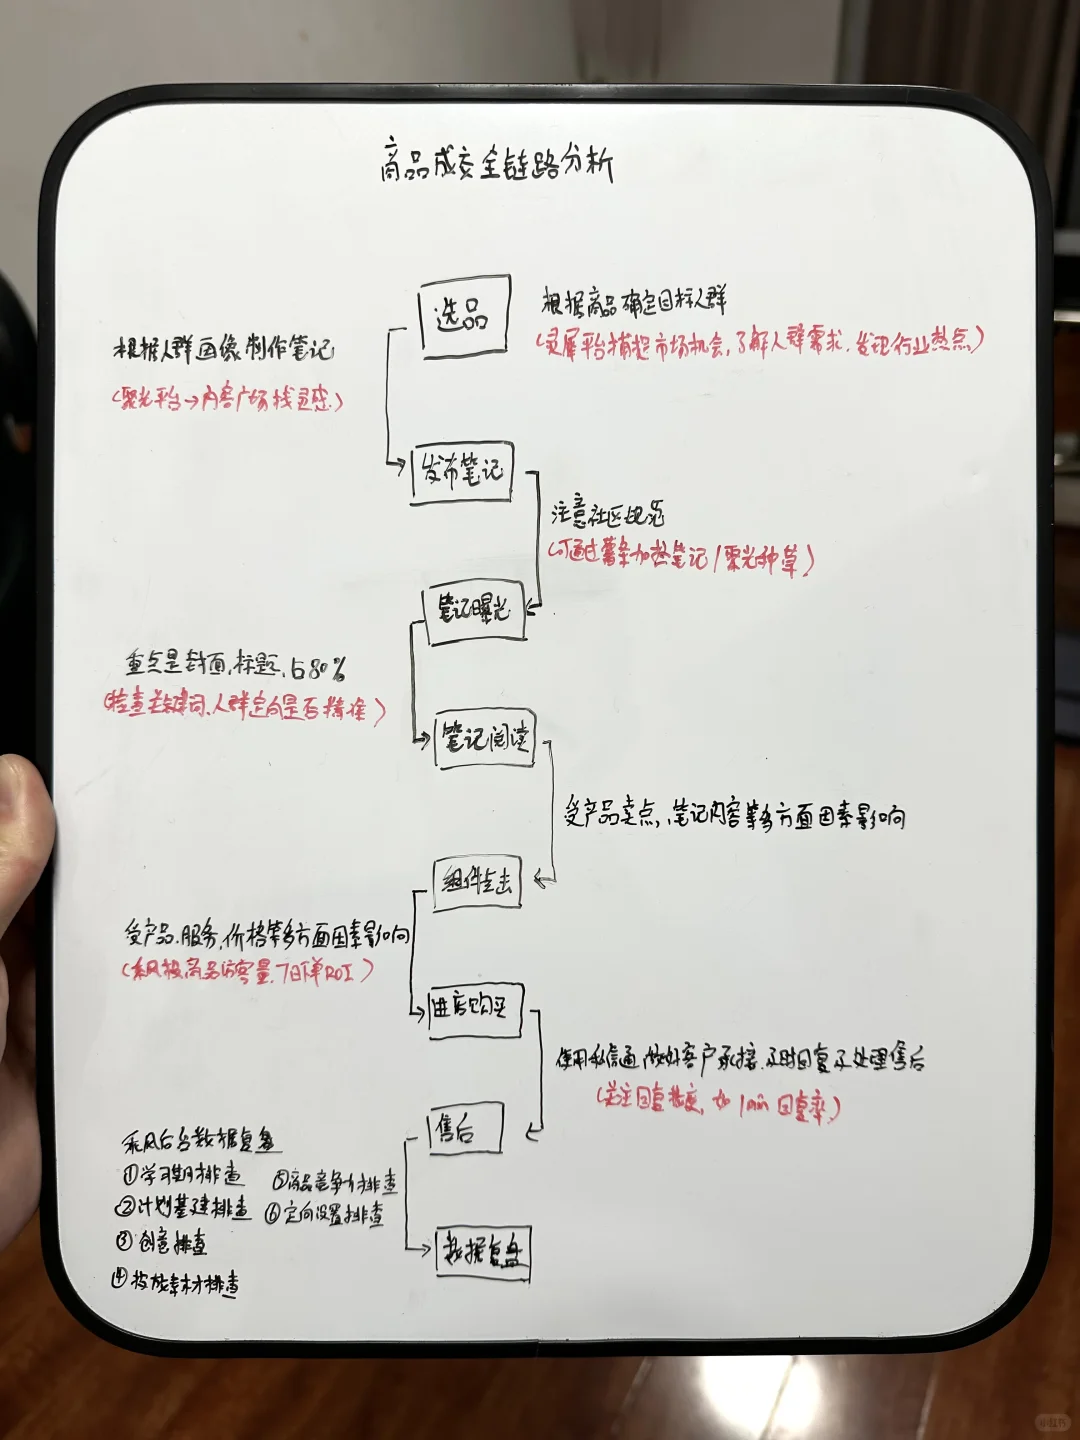 商品成交全链路分析
选品
根据商品确定目标人群
(灵犀平台捕捉市场机会,了解人群需求,发现行业热点)
根据人群画像制作笔记
(聚光平台→内容广场找灵感)
发布笔记
注意社区规范
(可通过薯条加热笔记/聚光种草)
笔记曝光
重点是封面,标题,占80%
(检查关键词、人群定向是否精准)
笔记阅读
受产品卖点,笔记内容等多方面因素影响
组件点击
受产品.服务,价格等多方面因素影响
(乘风投商品访客量,7日下单ROI)
进店购买
使用私信通,做好客户承接,及时回复及处理售后
(关注回复数度,如1min回复率)
售后
乘风后台数据复盘
①学习期排查
②计划基建排查
③创意排查
④投放素材排查
⑤商品竞争力排查
⑥定向设置排查
数据复盘
小红书